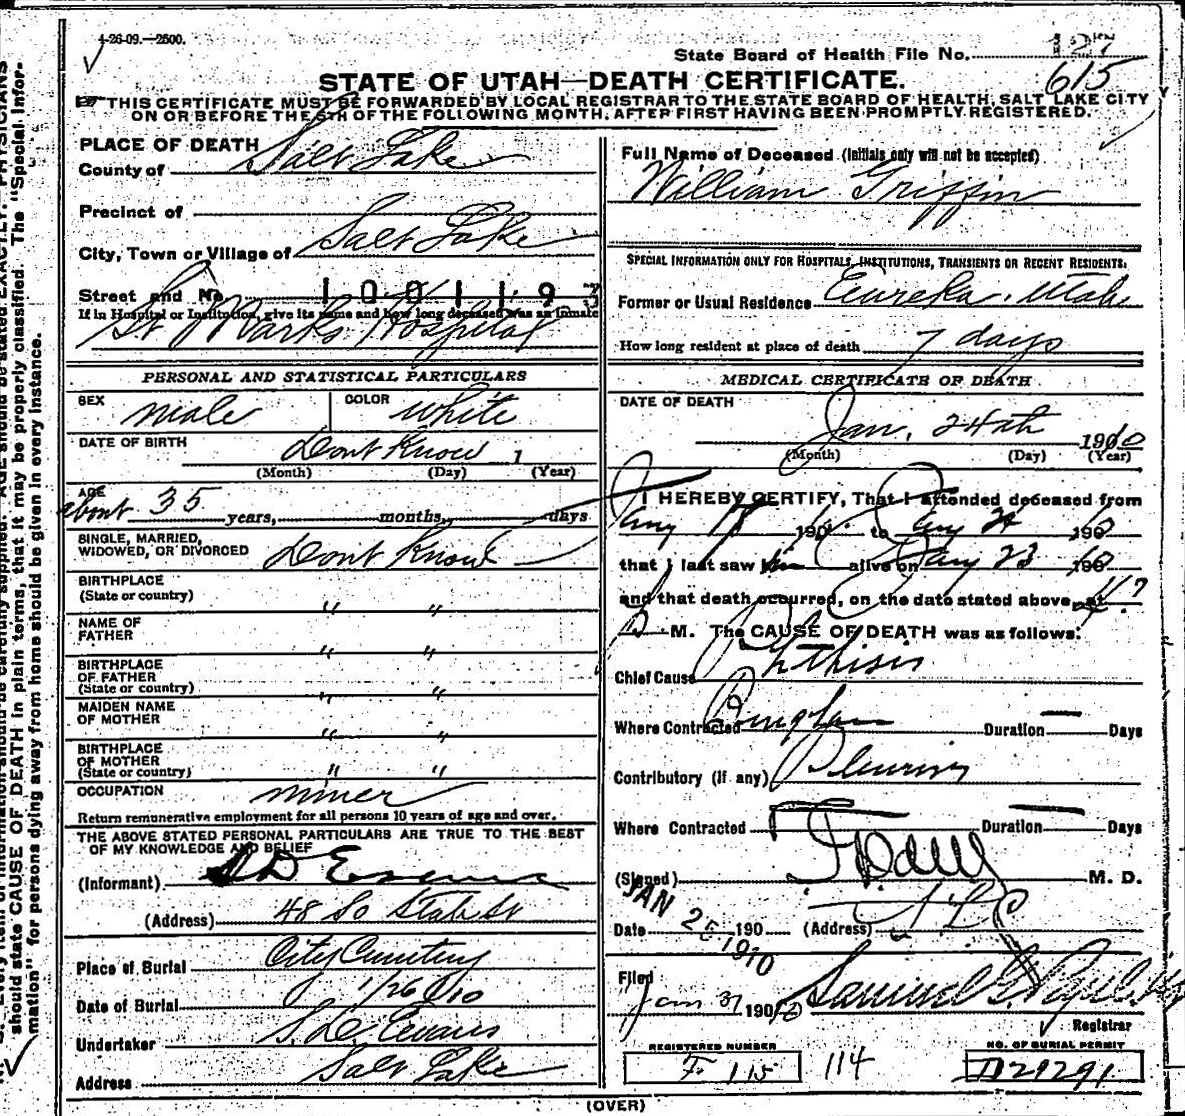 4-26-09.—2500.
State Board of Health File No. 127
615
STATE OF UTAH—DEATH CERTIFICATE.
THIS CERTIFICATE MUST BE FORWARDED BY LOCAL REGISTRAR TO THE STATE BOARD OF HEALTH, SALT LAKE CITY
ON OR BEFORE THE 5TH OF THE FOLLOWING MONTH. AFTER FIRST HAVING BEEN PROMPTLY REGISTERED.
PLACE OF DEATH
County of Salt Lake
Precinct of
City, Town or Village of Salt Lake
Street and No. 1001193
If in Hospital or Institution, give its name and how long deceased was an inmate
St Marks Hospital
PERSONAL AND STATISTICAL PARTICULARS
SEX male COLOR white
DATE OF BIRTH Dont Know 1
(Month) (Day) (Year)
AGE
about 35 years, months, days
SINGLE, MARRIED,
WIDOWED, OR DIVORCED Dont Know
BIRTHPLACE
(State or country) " "
NAME OF
FATHER " "
BIRTHPLACE
OF FATHER
(State or country) " "
MAIDEN NAME
OF MOTHER " "
BIRTHPLACE
OF MOTHER
(State or country) " "
OCCUPATION miner
Return remunerative employment for all persons 10 years of age and over.
THE ABOVE STATED PERSONAL PARTICULARS ARE TRUE TO THE BEST
OF MY KNOWLEDGE AND BELIEF
(Informant) S D Evans
(Address) 48 So State St
Place of Burial City Cemetery
Date of Burial 1/26/10
Undertaker S. D. Evans
Address Salt Lake
Full Name of Deceased (Initials only will not be accepted)
William Griffin
SPECIAL INFORMATION ONLY FOR HOSPITALS, INSTITUTIONS, TRANSIENTS OR RECENT RESIDENTS.
Former or Usual Residence Eureka, Utah
How long resident at place of death 7 days
MEDICAL CERTIFICATE OF DEATH
DATE OF DEATH
Jan. 24th 1910
(Month) (Day) (Year)
I HEREBY CERTIFY, That I attended deceased from
Jany 190 to Jany 24 1910
that I last saw him alive on Jany 23 1910
and that death occurred, on the date stated above, at
M. The CAUSE OF DEATH was as follows:
Chief Cause Phthisis
Where Contracted Bingham Duration — Days
Contributory (If any) Pleurisy
Where Contracted Duration — Days
(Signed) M. D.
JAN 25 1910
Date 190 (Address) S L C
Filed
Jan 31 1910 Samuel G.
Registrar
REGISTERED NUMBER NO. OF BURIAL PERMIT
F. 115 114 D29291
(OVER)
should state CAUSE OF DEATH in plain terms, that it may be properly classified. The "Special Infor-
mation" for persons dying away from home should be given in every instance.